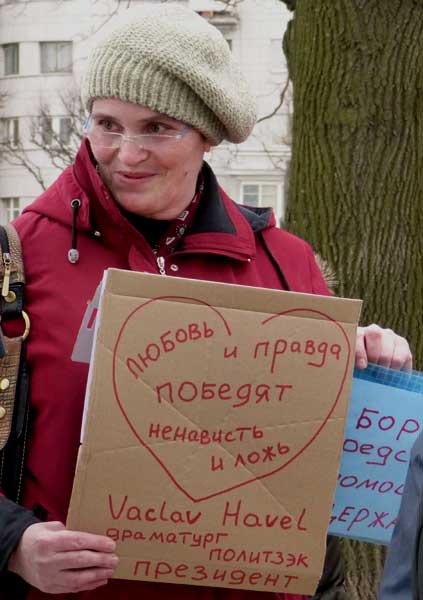 любовь и правда
победят
ненависть
и ложь
Vaclav Havel
драматург
политзэк
президент
Бор